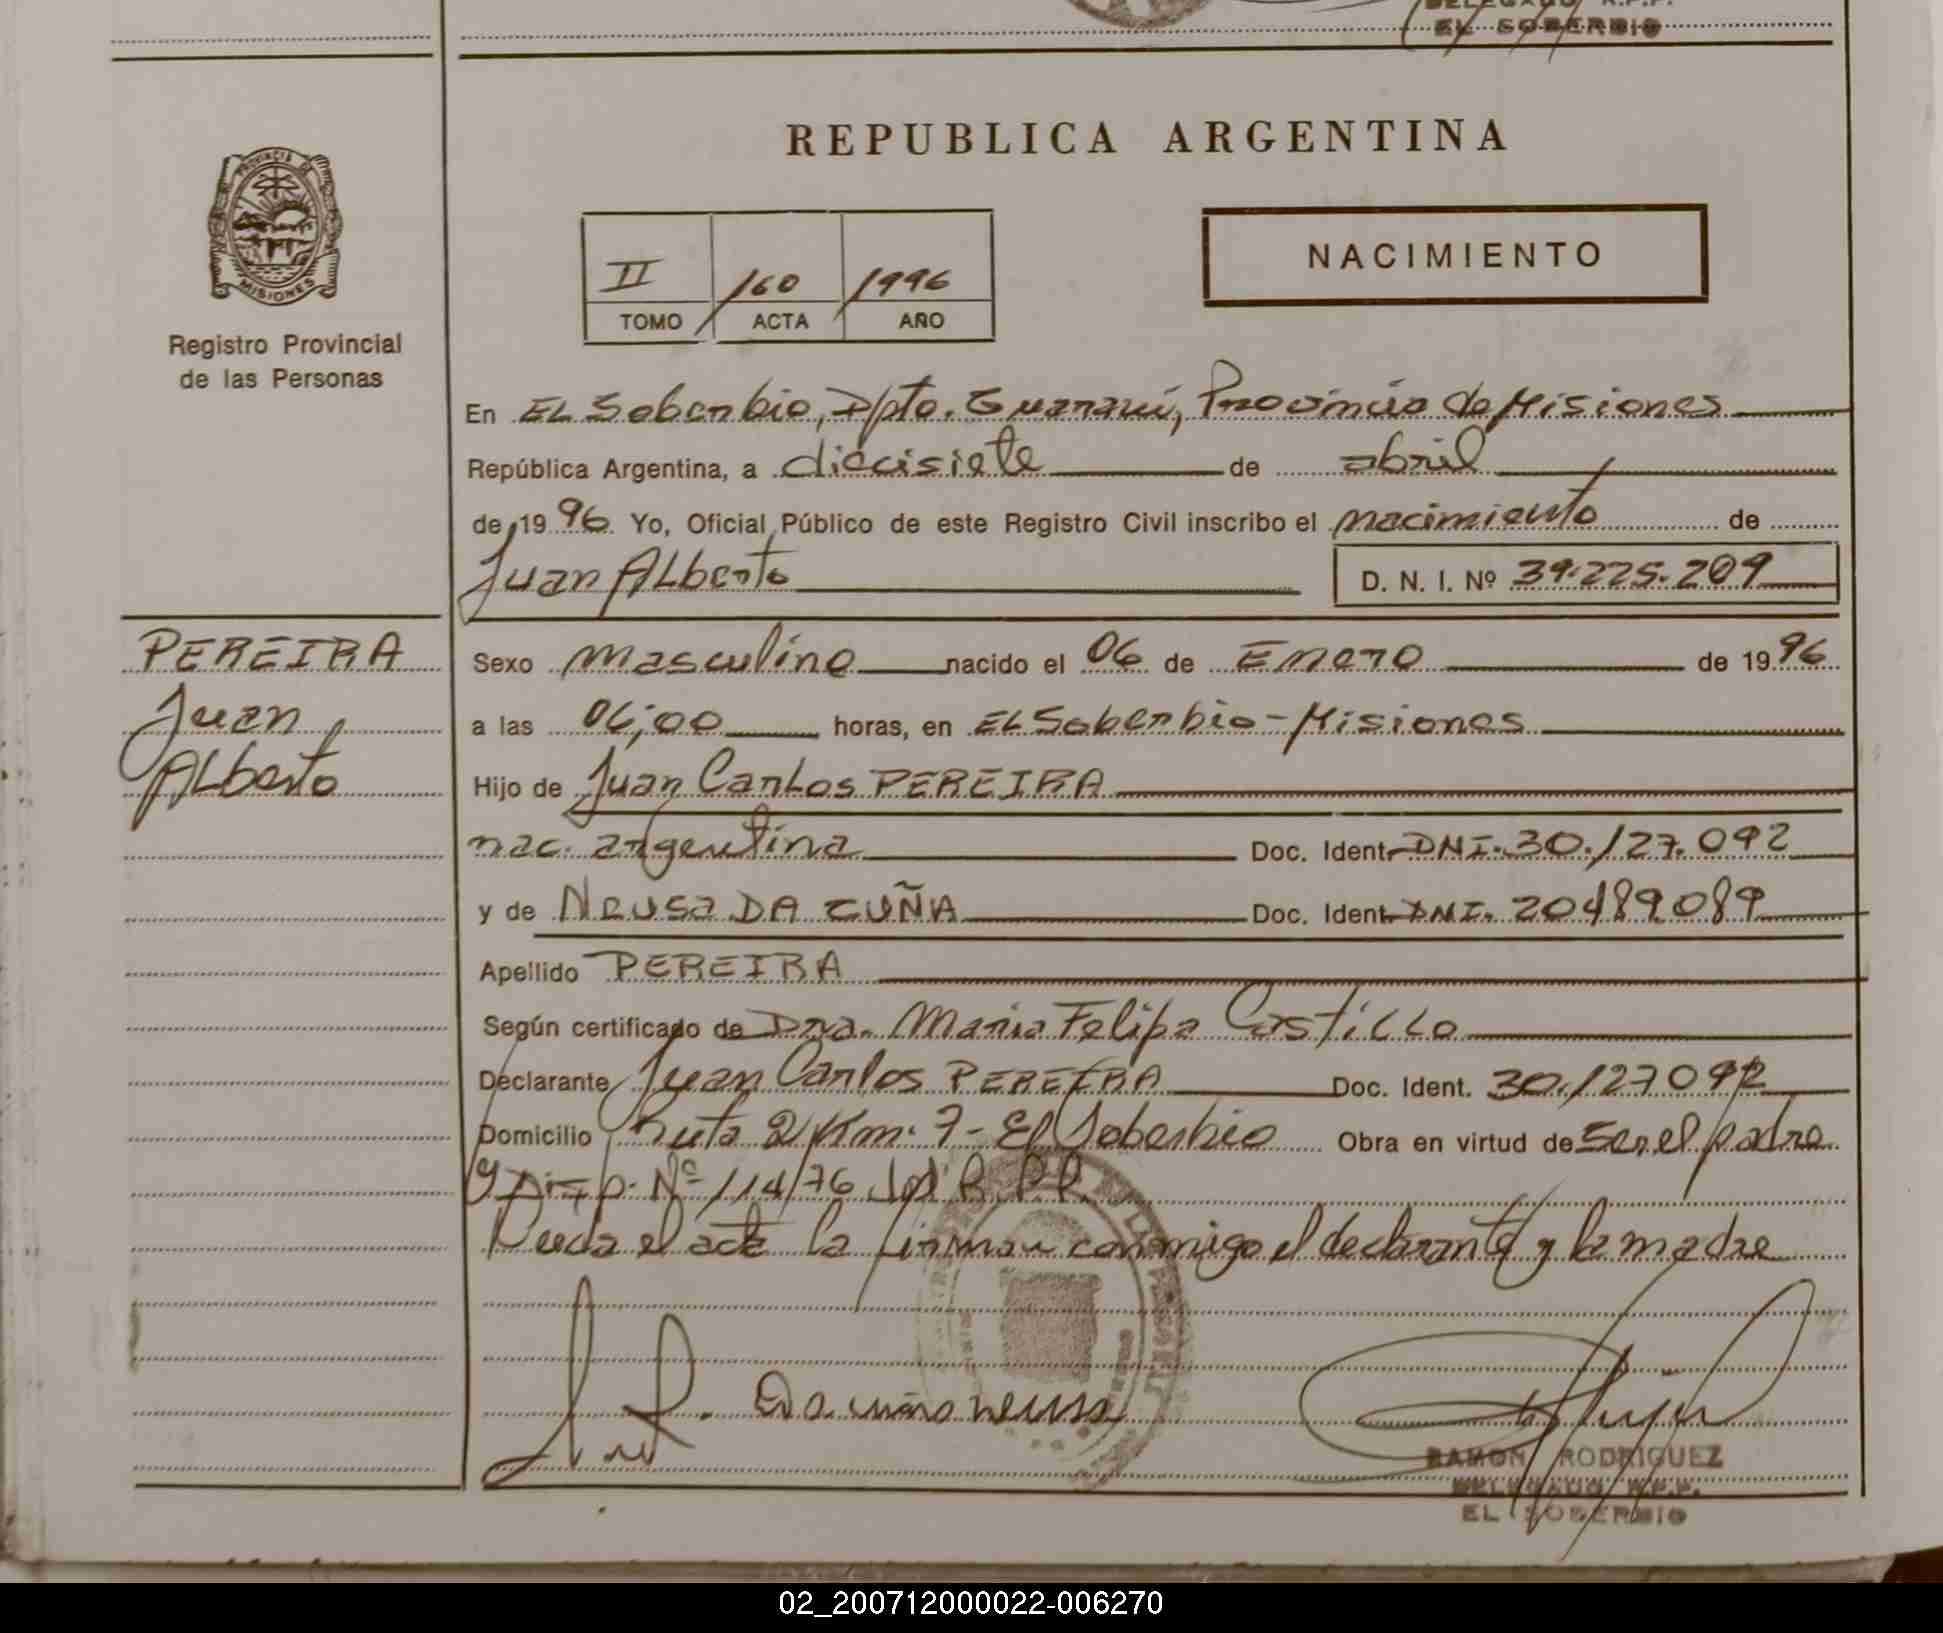 DELEGADO R.P.P.
EL SOBERBIO
REPUBLICA ARGENTINA
PROVINCIA DE
MISIONES
Registro Provincial
de las Personas
II 160 1996
TOMO ACTA AÑO
NACIMIENTO
En EL Soberbio, Dpto. Guaraní, Provincia de Misiones
República Argentina, a diecisiete de abril
de 1996. Yo, Oficial Público de este Registro Civil inscribo el nacimiento de
Juan ALberto D. N. I. Nº 39.225.209
PEREIRA
Juan
ALberto
Sexo masculino nacido el 06 de Enero de 1996
a las 06,00 horas, en EL Soberbio - Misiones
Hijo de Juan CarLos PEREIRA
nac. argentina Doc. Ident. DNI. 30.127.092
y de Neusa DA CUÑA Doc. Ident. DNI. 20489089
Apellido PEREIRA
Según certificado de Dra. Maria Felipa CastiLLo
Declarante Juan Carlos PEREIRA Doc. Ident. 30.127092
Domicilio Ruta 2 Km. 7 - El Soberbio Obra en virtud de Ser el padre
y Disp. Nº 114/76 R.P.P.
Leida el acta la firman conmigo el declarante y la madre
Da cuña neusa
RAMON RODRIGUEZ
DELEGADO R.P.P.
EL SOBERBIO
02_200712000022-006270